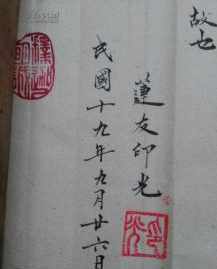 故也
蓮友印光
民國十九年九月廿六日